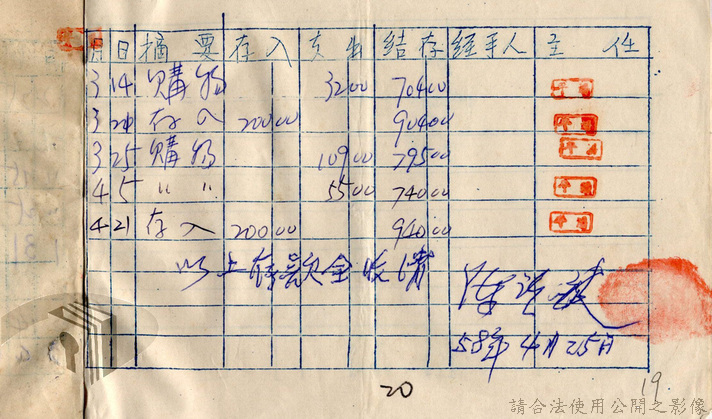 月 日 摘要 存入 支出 结存 经手人 主任
3 14 購物 3200 70400
3 24 存入 20000 90400
3 25 購物 10900 79500
4 5 〃 〃 5500 74000
4 21 存入 20000 94000
以上存款全收清
58年4月25日
20
19
請合法使用公開之影像